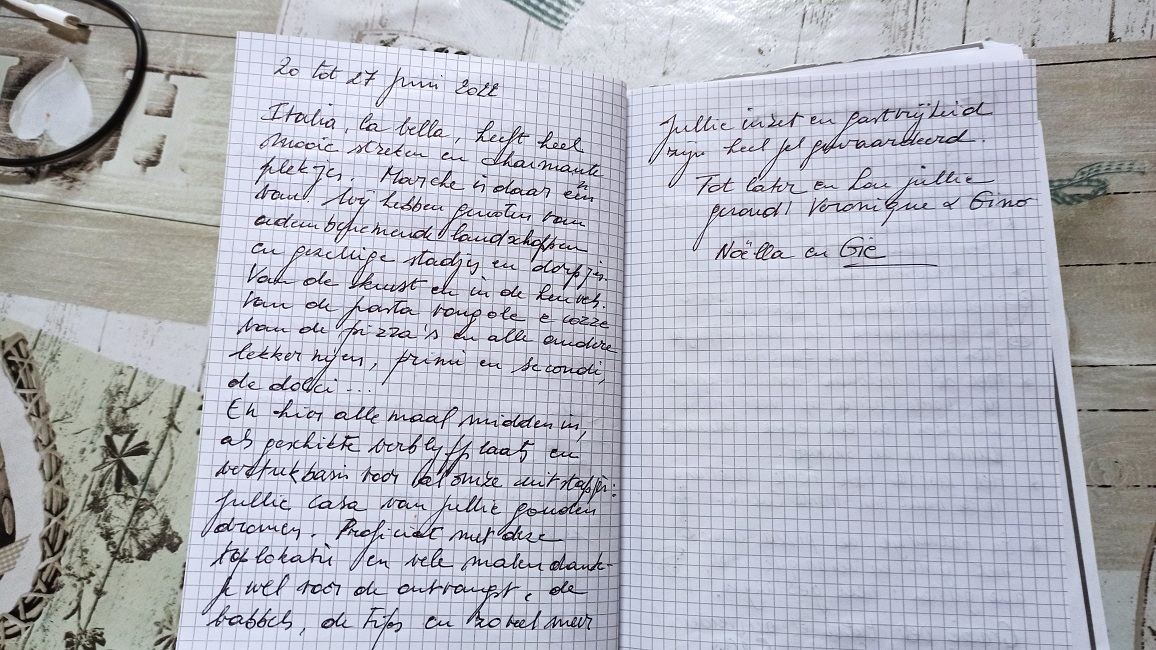 20 tot 27 juni 2022
Italia, la bella, heeft heel
mooie streken en charmante
plekjes. Marche is daar één
van. Wij hebben genoten van
adembenemende landschappen
en gezellige stadjes en dorpjes.
Van de kust en in de heuvels.
Van de pasta vongole e cozze
van de pizza's en alle andere
lekkernijen, primi en secondi,
de dolci ...
En hier allemaal middenin,
als geschikte verblijfplaats en
vertrekbasis voor al onze uitstapjes:
jullie casa van jullie gouden
dromen. Proficiat met deze
toplokatie en vele malen dank-
je wel voor de ontvangst, de
babbels, de tips en zoveel meer
Jullie inzet en gastvrijheid
zijn heel fel gewaardeerd.
Tot later en hou jullie
gezond! Veronique & Gino
Noëlla en Gie